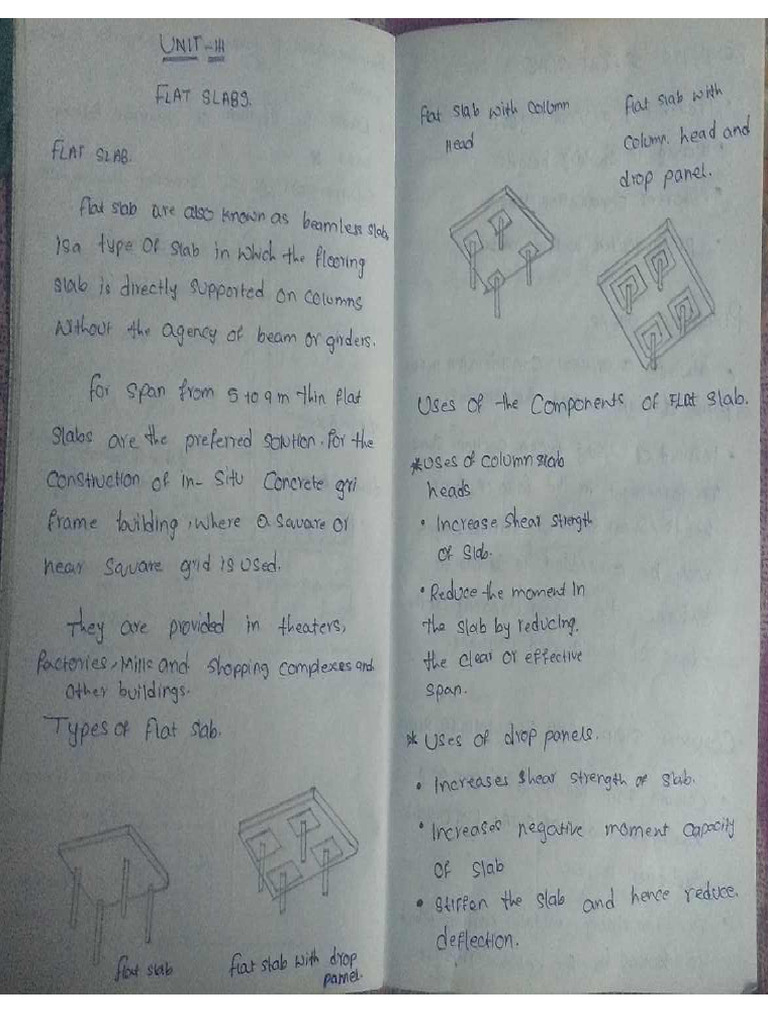 UNIT-III
FLAT SLABS.
FLAT SLAB.
flat slab are also known as beamless slab,
is a type of slab in which the flooring
slab is directly supported on columns
without the agency of beam or girders.
for span from 5 to 9 m thin flat
slabs are the preferred solution. for the
construction of in-situ concrete gri
frame building, where a square or
near square grid is used.
They are provided in theaters,
factories, mills and shopping complexes and
other buildings.
Types of flat slab.
flat slab
flat slab with drop
pannel.
flat slab with column
Head
flat slab with
column. head and
drop panel.
Uses of the components of FLAt slab.
*Uses of column slab
heads
• Increase shear strength
of slab.
• Reduce the moment in
the slab by reducing.
the clear or effective
span.
* Uses of drop panels.
• Increases shear strength of slab.
• Increases negative moment capacity
of slab
• stiffen the slab and hence reduce.
deflection.